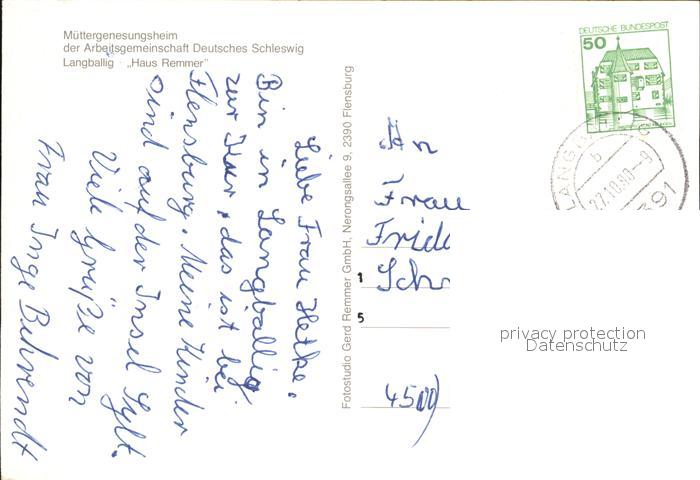 Müttergenesungsheim
der Arbeitsgemeinschaft Deutsches Schleswig
Langballig · „Haus Remmer"
Liebe Frau Hetke.
Bin in Langballig
zur Kur, das ist bei
Flensburg. Meine Kinder
sind auf der Insel Sylt.
Viele Grüße von
Frau Inge Behrendt
Fotostudio Gerd Remmer GmbH, Nerongsallee 9, 2390 Flensburg
DEUTSCHE BUNDESPOST
50
LANGB
b
27.10.80–9
C
2391
An
Frau
Fried
Sch
1
5
4500
privacy protection
Datenschutz